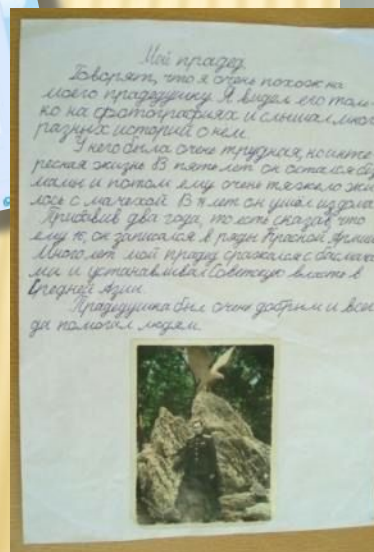 Мой прадед.
Говорят, что я очень похож на
моего прадедушку. Я видел его толь-
ко на фотографиях и слышал много
разных историй о нём.
У него была очень трудная, но инте-
ресная жизнь. В пять лет он остался без
мамы и потом ему очень тяжело жи-
лось с мачехой. В лет он ушёл из дома.
Прибавив два года, то есть сказав, что
ему он записался в ряды Красной Армии.
Много лет мой прадед сражался с басмача-
ми и устанавливал Советскую власть в
Средней Азии.
Прадедушка был очень добрым и всег-
да помогал людям.